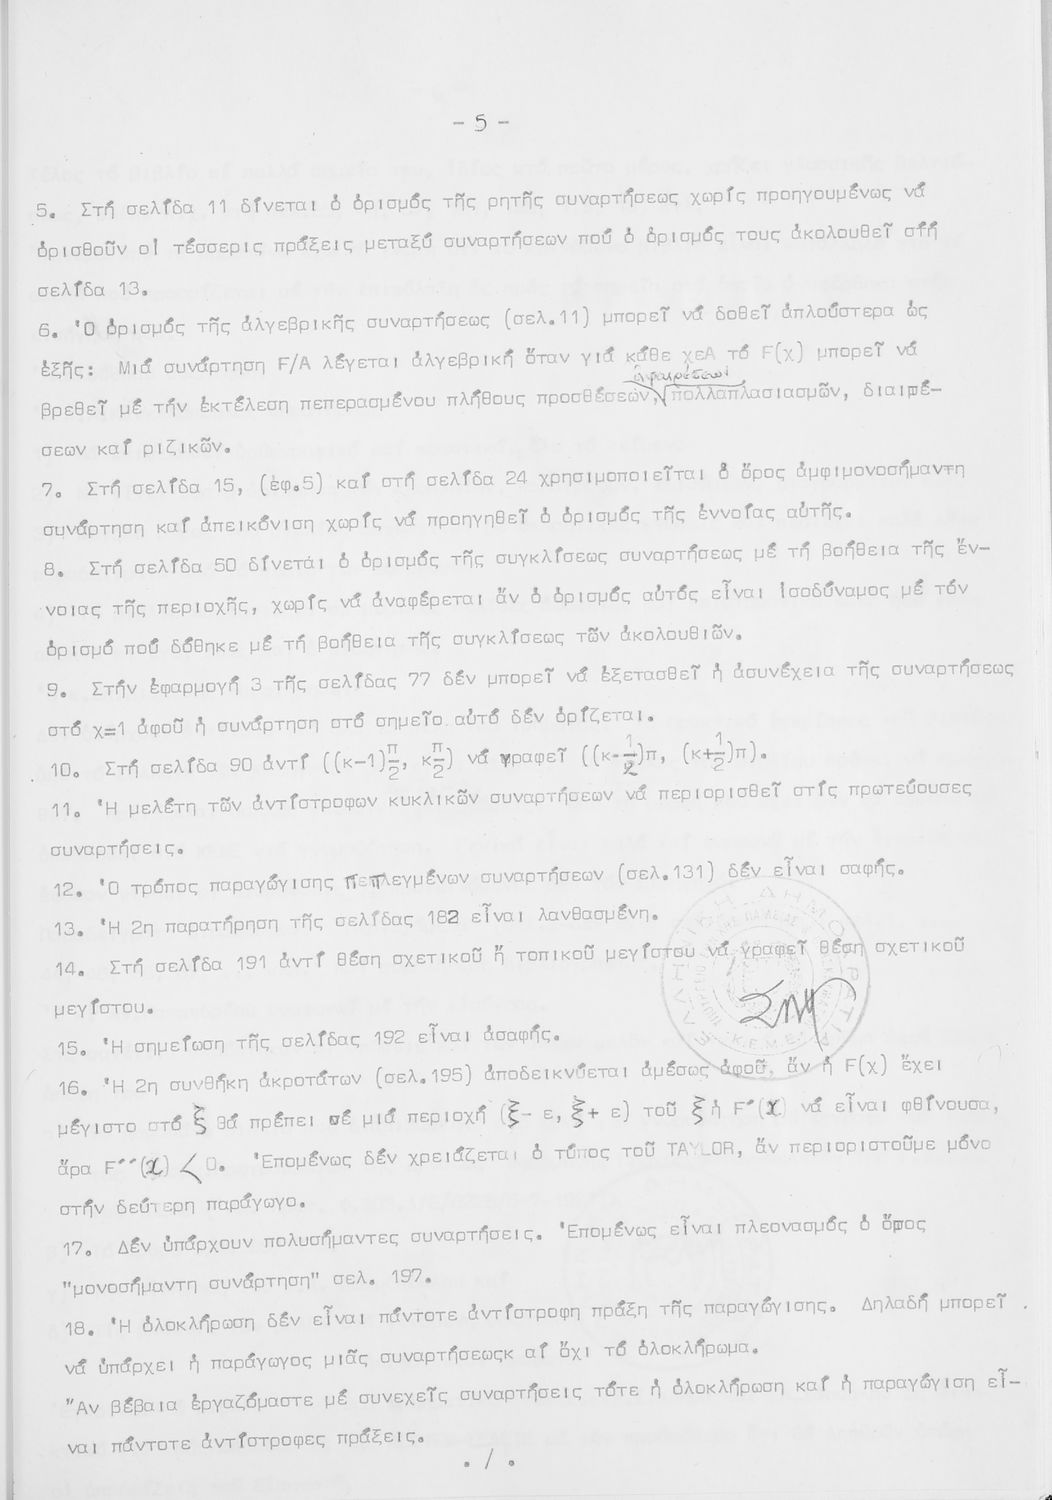 - 5 -
5. Στή σελίδα 11 δίνεται ὁ ὁρισμός τῆς ρητῆς συναρτήσεως χωρίς προηγουμένως νά
ὁρισθοῦν οἱ τέσσερις πράξεις μεταξύ συναρτήσεων πού ὁ ὁρισμός τους ἀκολουθεῖ στή
σελίδα 13.
6. Ὁ ὁρισμός τῆς ἀλγεβρικῆς συναρτήσεως (σελ.11) μπορεῖ νά δοθεῖ ἁπλούστερα ὡς
ἑξῆς: Μιά συνάρτηση F/A λέγεται ἀλγεβρική ὅταν γιά κάθε χεΑ τό F(χ) μπορεῖ νά
ἀφαιρέσεων
βρεθεῖ μέ τήν ἐκτέλεση πεπερασμένου πλήθους προσθέσεων, πολλαπλασιασμῶν, διαιρέ-
σεων καί ριζικῶν.
7. Στή σελίδα 15, (ἐφ.5) καί στή σελίδα 24 χρησιμοποιεῖται ὁ ὅρος ἀμφιμονοσήμαντη
συνάρτηση καί ἀπεικόνιση χωρίς νά προηγηθεῖ ὁ ὁρισμός τῆς ἐννοίας αὐτῆς.
8. Στή σελίδα 50 δίνεται ὁ ὁρισμός τῆς συγκλίσεως συναρτήσεως μέ τή βοήθεια τῆς ἔν-
νοιας τῆς περιοχῆς, χωρίς νά ἀναφέρεται ἄν ὁ ὁρισμός αὐτός εἶναι ἰσοδύναμος μέ τόν
ὁρισμό πού δόθηκε μέ τή βοήθεια τῆς συγκλίσεως τῶν ἀκολουθιῶν.
9. Στήν ἐφαρμογή 3 τῆς σελίδας 77 δέν μπορεῖ νά ἐξετασθεῖ ἡ ἀσυνέχεια τῆς συναρτήσεως
στό χ=1 ἀφοῦ ἡ συνάρτηση στό σημεῖο αὐτό δέν ὁρίζεται.
10. Στή σελίδα 90 ἀντί ((κ-1)π/2, κπ/2) νά γραφεῖ ((κ-1/2)π, (κ+1/2)π).
11. Ἡ μελέτη τῶν ἀντίστροφων κυκλικῶν συναρτήσεων νά περιορισθεῖ στίς πρωτεύουσες
συναρτήσεις.
12. Ὁ τρόπος παραγώγισης πεπλεγμένων συναρτήσεων (σελ.131) δέν εἶναι σαφής.
13. Ἡ 2η παρατήρηση τῆς σελίδας 182 εἶναι λανθασμένη.
14. Στή σελίδα 191 ἀντί θέση σχετικοῦ ἤ τοπικοῦ μεγίστου νά γραφεῖ θέση σχετικοῦ
μεγίστου.
15. Ἡ σημείωση τῆς σελίδας 192 εἶναι ἀσαφής.
16. Ἡ 2η συνθήκη ἀκροτάτων (σελ.195) ἀποδεικνύεται ἀμέσως ἀφοῦ, ἄν ἡ F(χ) ἔχει
μέγιστο στό ξ θά πρέπει σέ μιά περιοχή (ξ- ε, ξ+ ε) τοῦ ξ ἡ F´(χ) νά εἶναι φθίνουσα,
ἄρα F´´(χ) < 0. Ἑπομένως δέν χρειάζεται ὁ τύπος τοῦ TAYLOR, ἄν περιοριστοῦμε μόνο
στήν δεύτερη παράγωγο.
17. Δέν ὑπάρχουν πολυσήμαντες συναρτήσεις. Ἑπομένως εἶναι πλεονασμός ὁ ὅρος
"μονοσήμαντη συνάρτηση" σελ. 197.
18. Ἡ ὁλοκλήρωση δέν εἶναι πάντοτε ἀντίστροφη πράξη τῆς παραγώγισης. Δηλαδή μπορεῖ
νά ὑπάρχει ἡ παράγωγος μιᾶς συναρτήσεωςκ αί ὄχι τό ὁλοκλήρωμα.
Ἄν βέβαια ἐργαζόμαστε μέ συνεχεῖς συναρτήσεις τότε ἡ ὁλοκλήρωση καί ἡ παραγώγιση εἶ-
ναι πάντοτε ἀντίστροφες πράξεις.
. / .